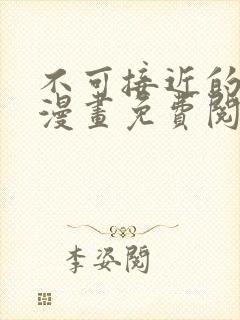 不可接近的
漫畫免費閱
李姿閱